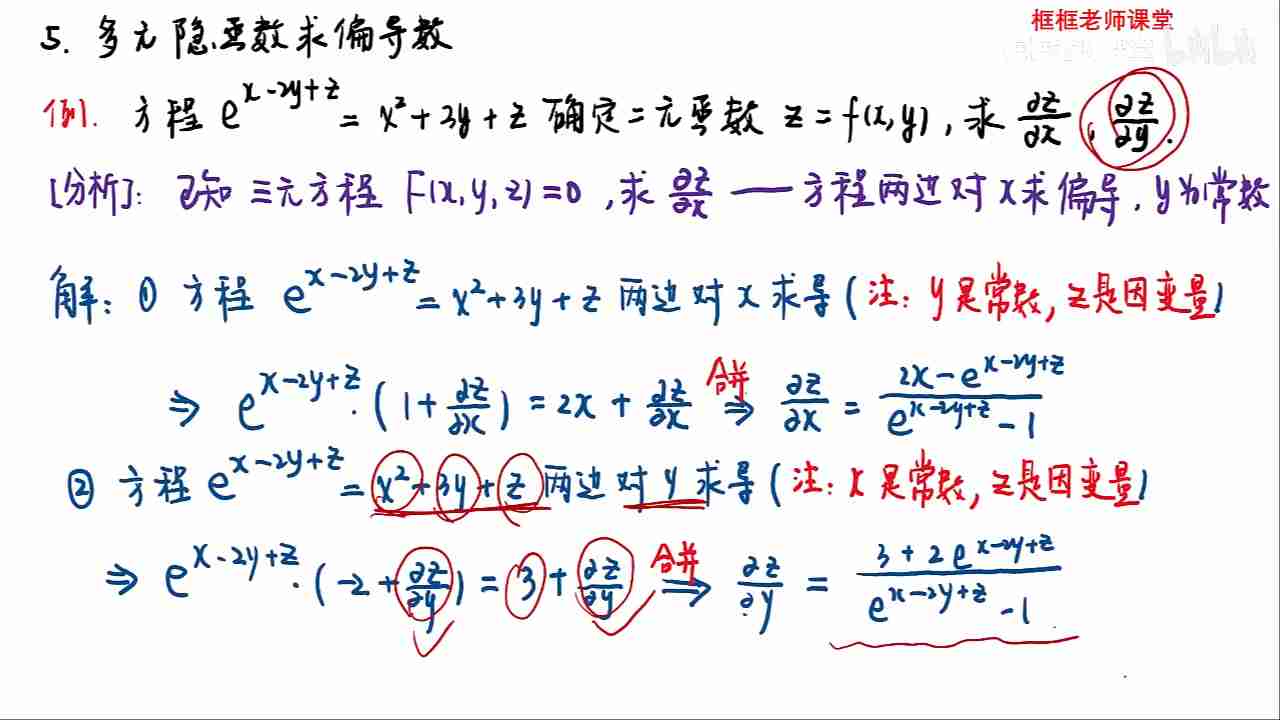 框框老师课堂
5. 多元隐函数求偏导数
例. 方程 e^{x-2y+z} = x²+3y+z 确定二元函数 z=f(x,y), 求 ∂z/∂x, ∂z/∂y.
[分析]: 已知三元方程 F(x,y,z)=0, 求 ∂z/∂x —— 方程两边对 x 求偏导, y为常数
解: ① 方程 e^{x-2y+z} = x²+3y+z 两边对 x 求导 (注: y是常数, z是因变量)
⇒ e^{x-2y+z}·(1+∂z/∂x) = 2x+∂z/∂x 合并⇒ ∂z/∂x = (2x-e^{x-2y+z})/(e^{x-2y+z}-1)
② 方程 e^{x-2y+z} = x²+3y+z 两边对 y 求导 (注: x是常数, z是因变量)
⇒ e^{x-2y+z}·(-2+∂z/∂y) = 3+∂z/∂y 合并⇒ ∂z/∂y = (3+2e^{x-2y+z})/(e^{x-2y+z}-1)